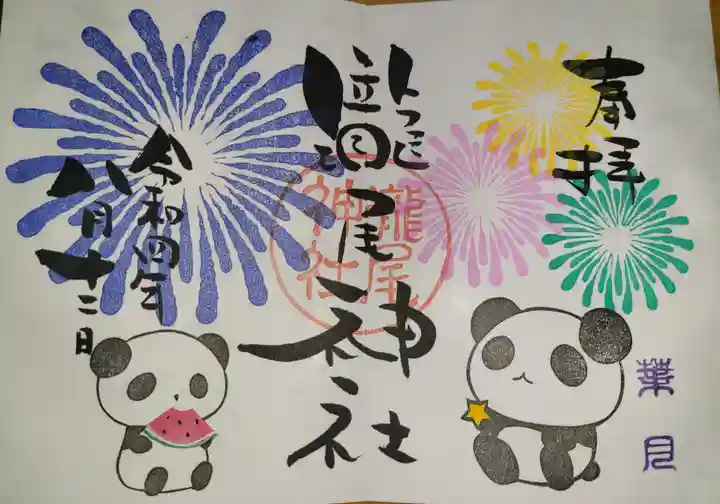 奉拝
瀧尾神社
瀧尾
神社
令和四年
八月十二日
葉月